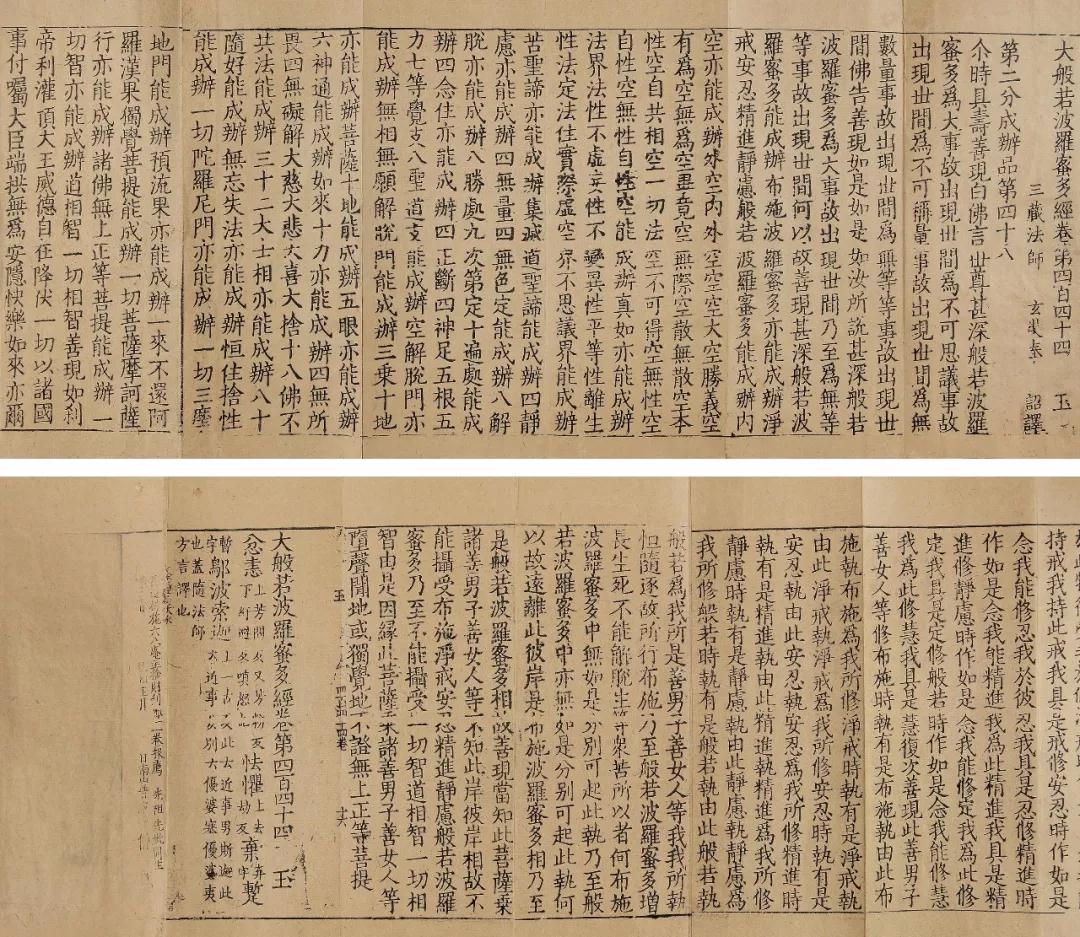 大般若波羅蜜多經卷第四百四十四 玉
三藏法師 玄奘奉 詔譯
第二分成辦品第四十八
尒時具壽善現白佛言世尊甚深般若波羅
蜜多爲大事故出現世間爲不可思議事故
出現世間爲不可稱量事故出現世間爲無
數量事故出現世間爲無等等事故出現世
間佛告善現如是如是如汝所說甚深般若
波羅蜜多爲大事故出現世間乃至爲無等
等事故出現世間何以故善現甚深般若波
羅蜜多能成辦布施波羅蜜多亦能成辦淨
戒安忍精進靜慮般若波羅蜜多能成辦內
空亦能成辦外空內外空空空大空勝義空
有爲空無爲空畢竟空無際空散無散空本
性空自共相空一切法空不可得空無性空
自性空無性自性空能成辦真如亦能成辦
法界法性不虛妄性不變異性平等性離生
性法定法住實際虛空界不思議界能成辦
苦聖諦亦能成辦集滅道聖諦能成辦四靜
慮亦能成辦四無量四無色定能成辦八解
脫亦能成辦八勝處九次第定十遍處能成
辦四念住亦能成辦四正斷四神足五根五
力七等覺支八聖道支能成辦空解脫門亦
能成辦無相無願解脫門能成辦三乘十地
亦能成辦菩薩十地能成辦五眼亦能成辦
六神通能成辦如來十力亦能成辦四無所
畏四無礙解大慈大悲大喜大捨十八佛不
共法能成辦三十二大士相亦能成辦八十
隨好能成辦無忘失法亦能成辦恒住捨性
能成辦一切陀羅尼門亦能成辦一切三摩
地門能成辦預流果亦能成辦一來不還阿
羅漢果獨覺菩提能成辦一切菩薩摩訶薩
行亦能成辦諸佛無上正等菩提能成辦一
切智亦能成辦道相智一切相智善現如刹
帝利灌頂大王威德自在降伏一切以諸國
事付囑大臣端拱無爲安隱快樂如來亦爾
持戒我持此戒我具是戒修安忍時作如是
念我能修忍我於彼忍我具是忍修精進時
作如是念我能精進我爲此精進我具是精
進修靜慮時作如是念我能修定我爲此修
定我具是定修般若時作如是念我能修慧
我爲此修慧我具是慧復次善現此善男子
善女人等修布施時執有是布施執由此布
施執布施爲我所修淨戒時執有是淨戒執
由此淨戒執淨戒爲我所修安忍時執有是
安忍執由此安忍執安忍爲我所修精進時
執有是精進執由此精進執精進爲我所修
靜慮時執有是靜慮執由此靜慮執靜慮爲
我所修般若時執有是般若執由此般若執
般若爲我所是善男子善女人等我我所執
恒隨逐故所行布施乃至般若波羅蜜多增
長生死不能解脫生等眾苦所以者何布施
波羅蜜多中無如是分別可起此執乃至般
若波羅蜜多中亦無如是分別可起此執何
以故遠離此彼岸是布施波羅蜜多相乃至
是般若波羅蜜多相故善現當知此菩薩乘
諸善男子善女人等不知此岸彼岸相故不
能攝受布施淨戒安忍精進靜慮般若波羅
蜜多乃至不能攝受一切智道相智一切相
智由是因緣此菩薩乘諸善男子善女人等
墮聲聞地或獨覺地不證無上正等菩提
玉
大般若波羅蜜多經卷第四百四十四 玉
忿恚 怯懼 棄 暫
鄔波索迦
也蓋隨法師
方言譯也